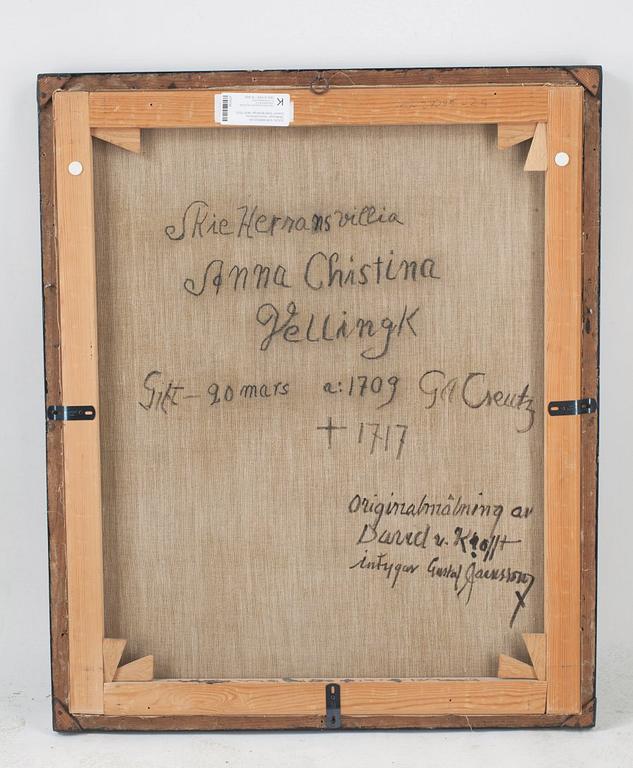 Skie Herransvillia
Anna Chistina
Vellingk
Gift - 20 mars a: 1709 GA Creutz
+ 1717
Originalmålning av
David v. Krafft
intygar Gustaf Jaensson
X
K